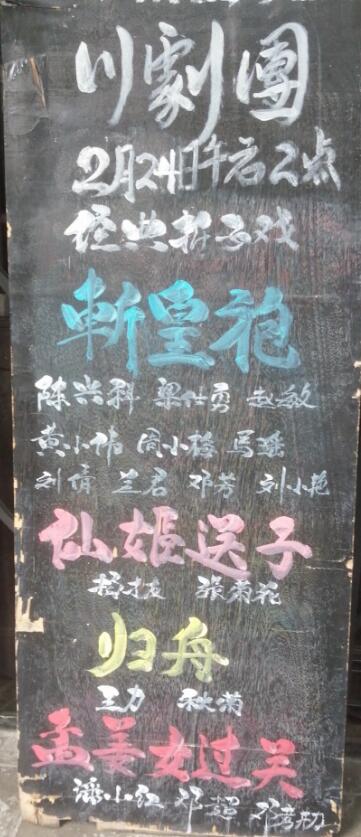 川劇團
2月24日午后2点
经典折子戏
斬皇袍
陈兴科 梁仕勇 赵敏
黄小伟 周小梅 馬瑶
刘倩 兰君 邓芳 刘小艳
仙姬送子
杨才友 張菊花
归舟
王力 秋菊
孟姜女过关
潘小红 邓超